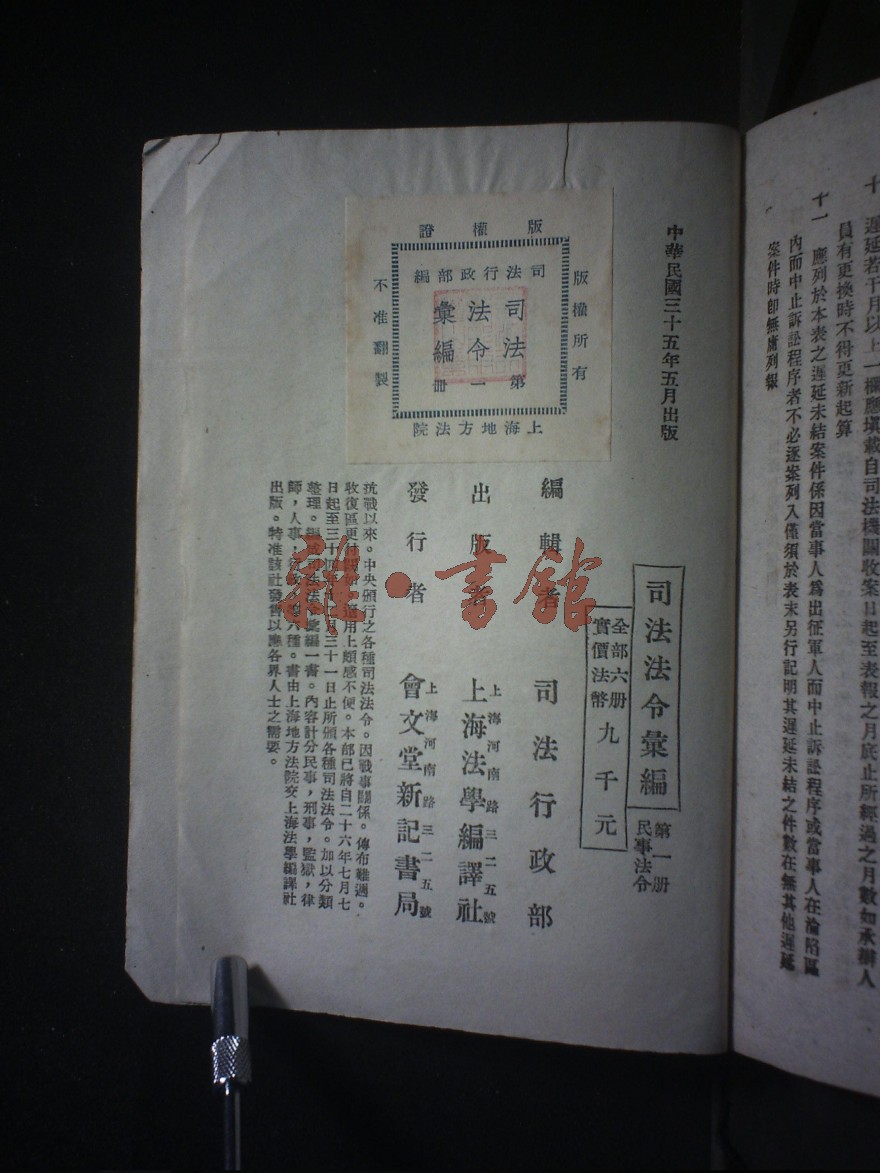 十　遲延若干月以上一欄應塡載自司法機關收案日起至表報之月底止所經過之月數如承辦人
員有更換時不得更新起算
十一　應列於本表之遲延未結案件係因當事人爲出征軍人而中止訴訟程序或當事人在淪陷區
內而中止訴訟程序者不必逐案列入僅須於表末另行記明其遲延未結之件數在無其他遲延
案件時卽無庸列報
中華民國三十五年五月出版
版權證
版權所有
不准翻製
司法行政部編
司法
法令
彙編
第一册
上海地方法院
司法法令彙編
第一册
民事法令
全部六册
實價法幣
九千元
編輯者　司法行政部
出版者　上海法學編譯社
上海河南路三二五號
發行者　會文堂新記書局
上海河南路三二五號
抗戰以來。中央頒行之各種司法法令。因戰事關係。傳布難週。
收復區更
用上頗感不便。本部已將自二十六年七月七
日起至三十四年
月三十一日止所頒各種司法法令。加以分類
整理。編成司法法令彙編一書。內容計分民事，刑事，監獄，律
師，人事，
六種。書由上海地方法院交上海法學編譯社
出版。特准該社發售以應各界人士之需要。
雜·書館